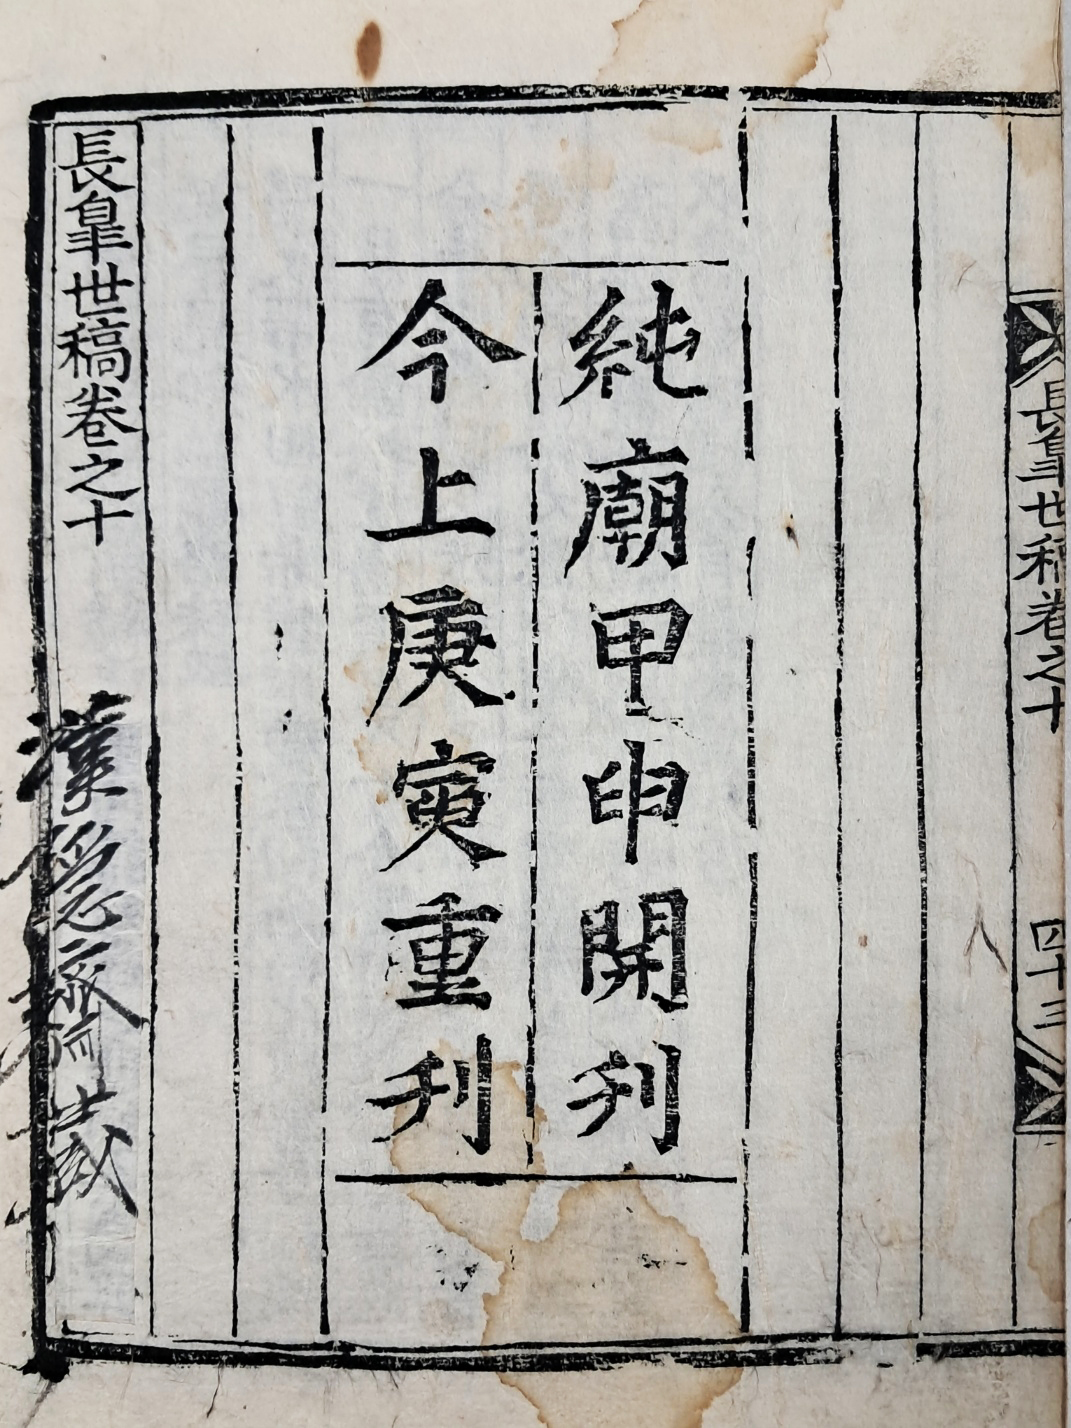 長皐世稿卷之十
四十三
純廟甲申開刋
今上庚寅重刋
長皐世稿卷之十